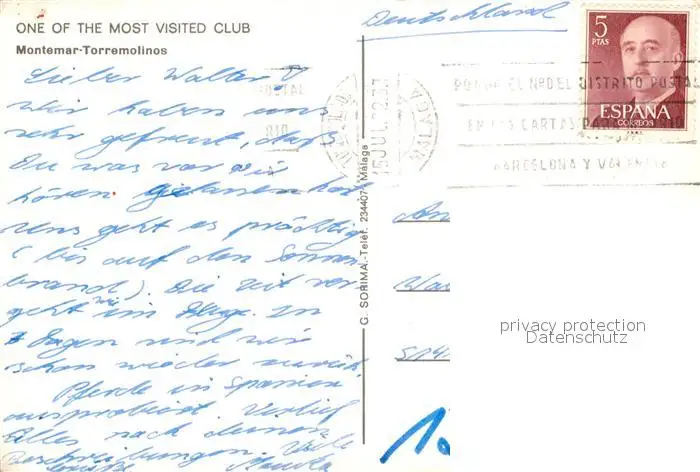 ONE OF THE MOST VISITED CLUB
Montemar-Torremolinos
Deutschland
Lieber Walter!
Wir haben uns
sehr gefreut, daß
Du was von Dir
hören gelassen hast
uns geht es prächtig
(bis auf den Sonnen-
brand). Die Zeit ver-
geht wie im Fluge. In
Tagen sind wir
schon wieder zurück.
Pferde in Spanien
ausprobiert. Verlief
Alles nach deinen
Beschreibungen. Viele
Grüße
G. SORIMA.-Teléf. 234407-Málaga
5
PTAS
ESPAÑA
CORREOS
MALAGA
15 JUL 72
PONGA EL Nº DEL DISTRITO POSTAL
EN LAS CARTAS PARA MADRID
BARCELONA Y VALENCIA
An
privacy protection
Datenschutz